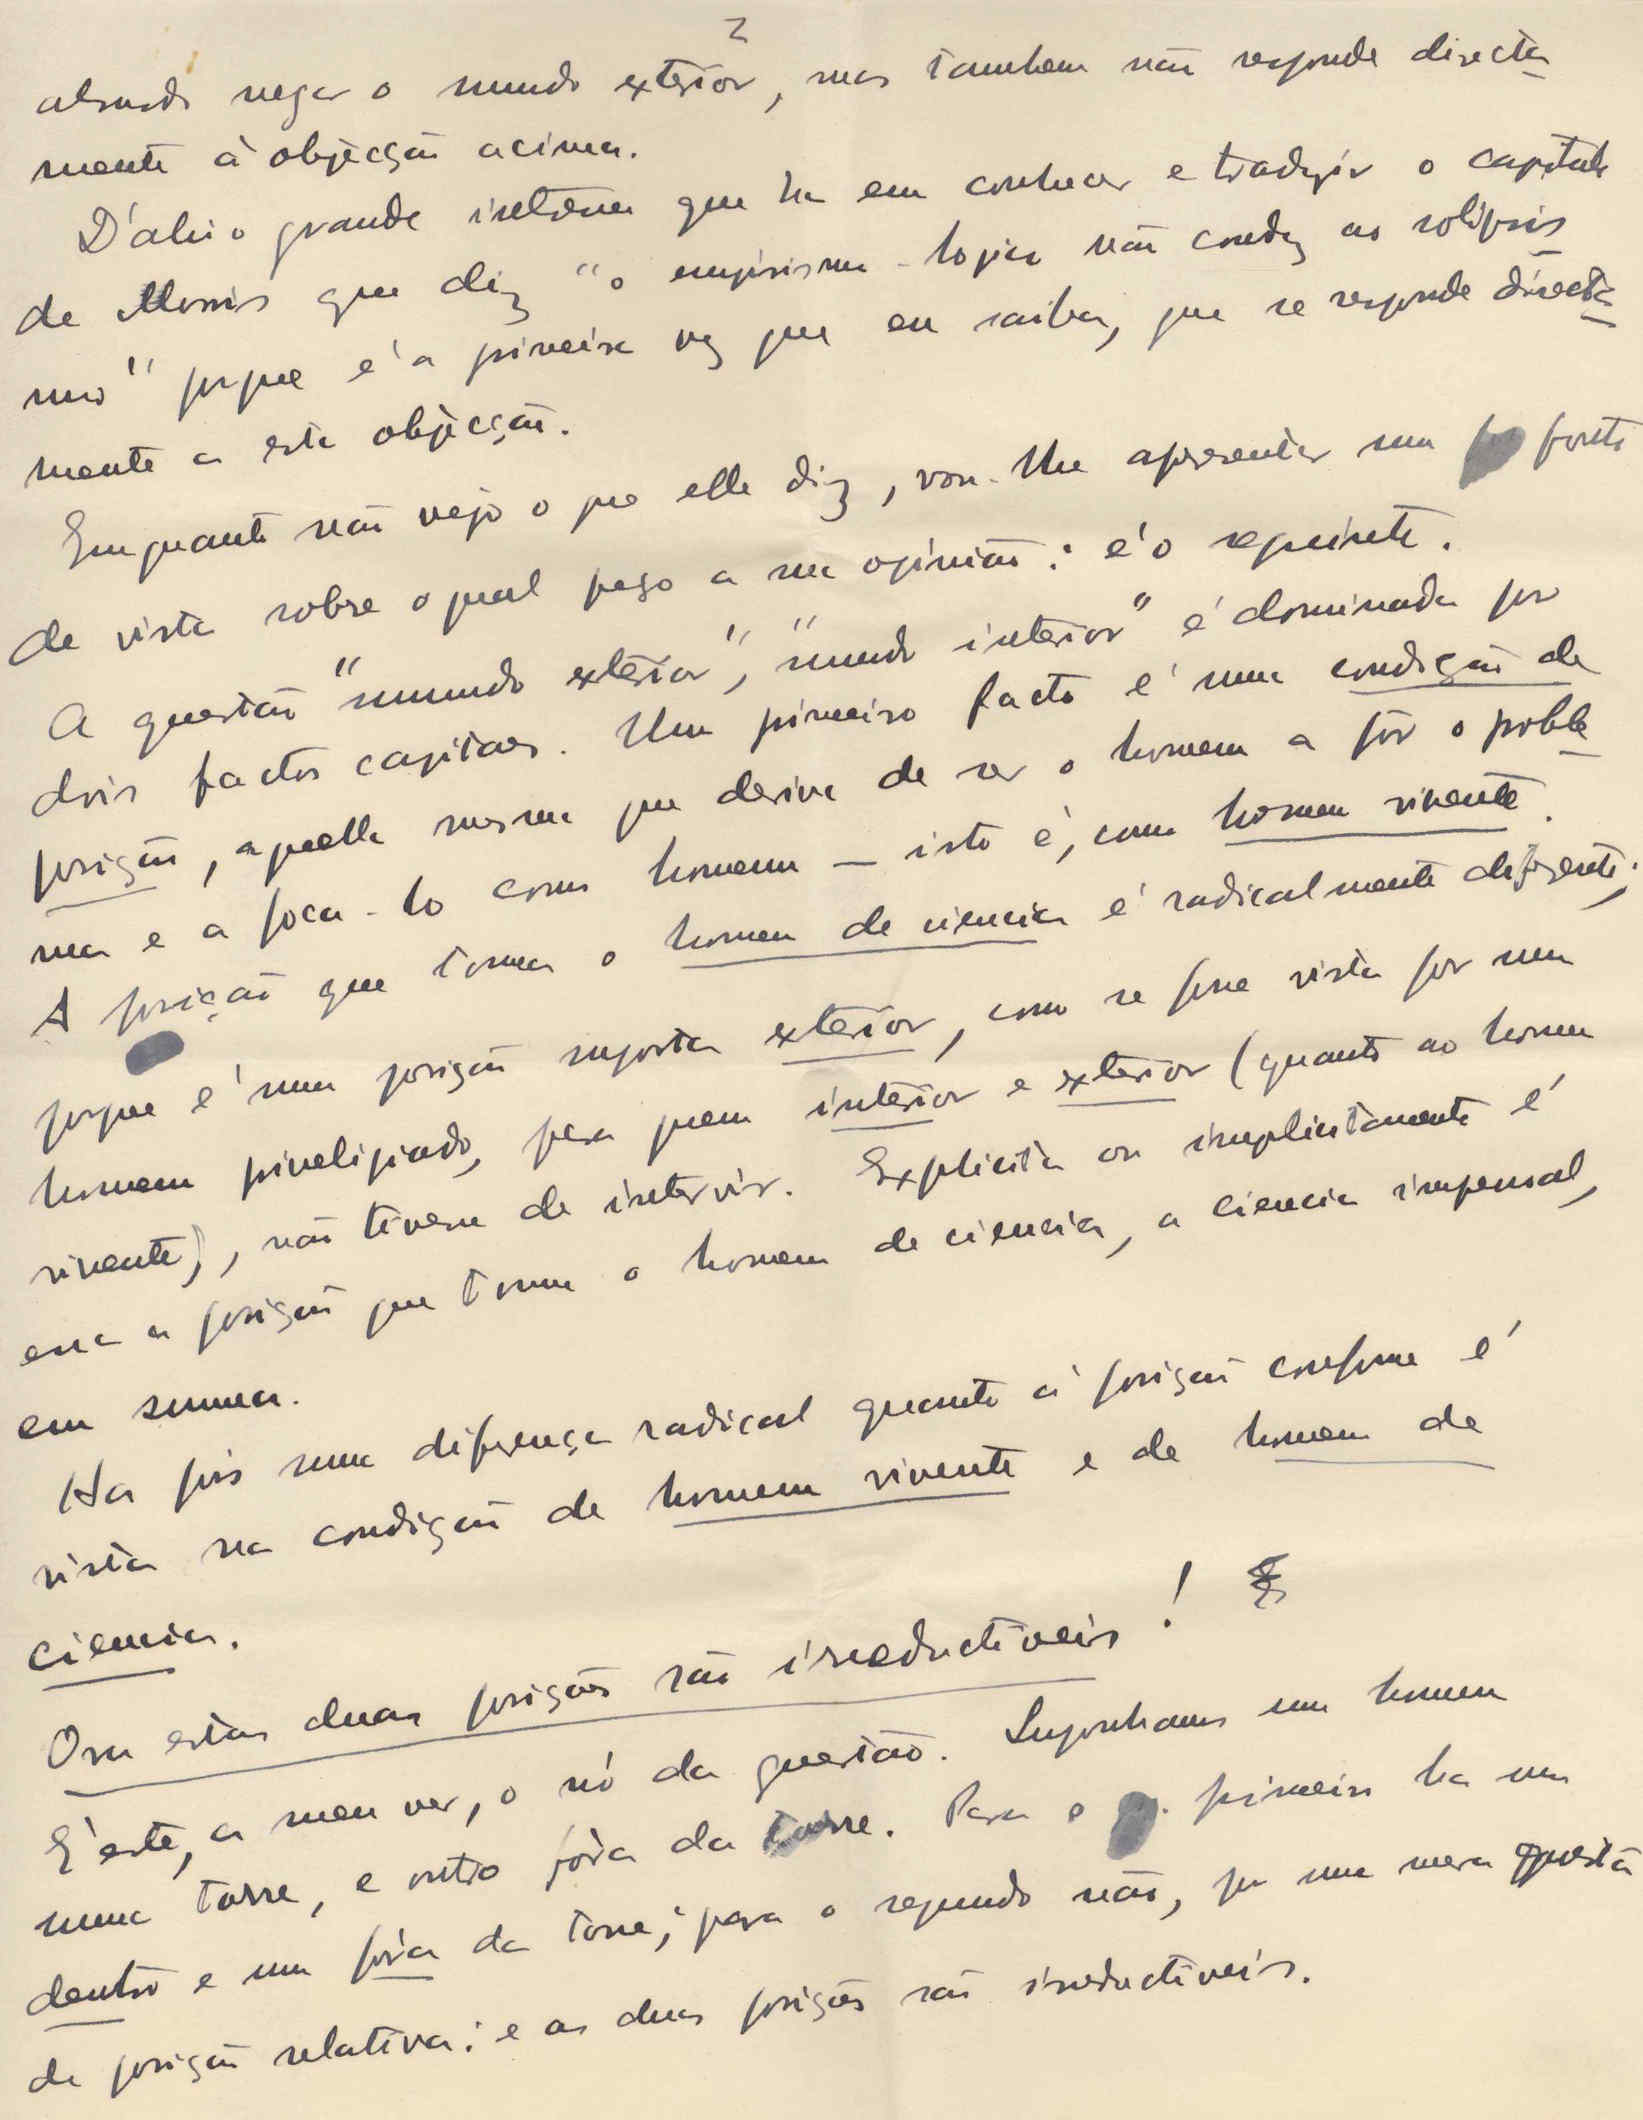 2
absurdo negar o mundo exterior, mas tambem não responde directa
mente á objecção acima.
D'ahi o grande interesse que ha em conhecer e traduzir o capitulo
de Morris que diz "o empirismo-logico não conduz ao solipsis
mo" porque é a primeira vez que eu saiba, que se responde directa
mente a esta objecção.
Emquanto não vejo o que elle diz, vou-lhe apresentar um ponto
de vista sobre o qual peço a sua opinião: é o seguinte.
A questão "mundo exterior", "mundo interior" é dominada por
dois factos capitaes. Um primeiro facto é uma condição de
posição, aquella mesma que deriva de ser o homem a pôr o proble
ma e a foca-lo como homem — isto é, como homem vivente.
A posição que toma o homem de ciencia é radicalmente diferente;
porque é uma posição suposta exterior, como se fosse vista por um
homem priveligiado, para quem interior e exterior (quanto ao homem
vivente), não tivesse de intervir. Explicita ou implicitamente é
essa a posição que toma o homem de ciencia, a ciencia impessoal,
em summa.
Ha pois uma diferença radical quanto á posição conforme é
vista na condição de homem vivente e de homem de
ciencia.
Ora estas duas posições são irreductiveis!
E' este, a meu ver, o nó da questão. Suponhamos um homem
numa torre, e outro fóra da torre. Para o primeiro ha um
dentro e um fóra da torre; para o segundo não, por uma mera questão
de posição relativa: e as duas posições são irreductiveis.